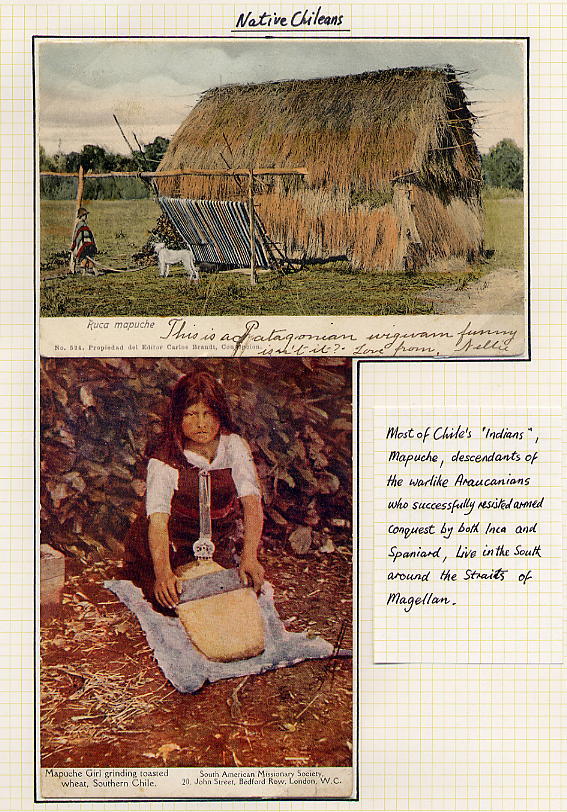 Native Chileans
Ruca mapuche
This is a Patagonian wigwam funny
isn't it? Love from, Nellie
No. 524. Propiedad del Editor Carlos Brandt, Concepcion.
Most of Chile's "Indians",
Mapuche, descendants of
the warlike Araucanians
who successfully resisted armed
conquest by both Inca and
Spaniard, Live in the South
around the Straits of
Magellan.
Mapuche Girl grinding toasted
wheat, Southern Chile.
South American Missionary Society,
20, John Street, Bedford Row, London, W.C.